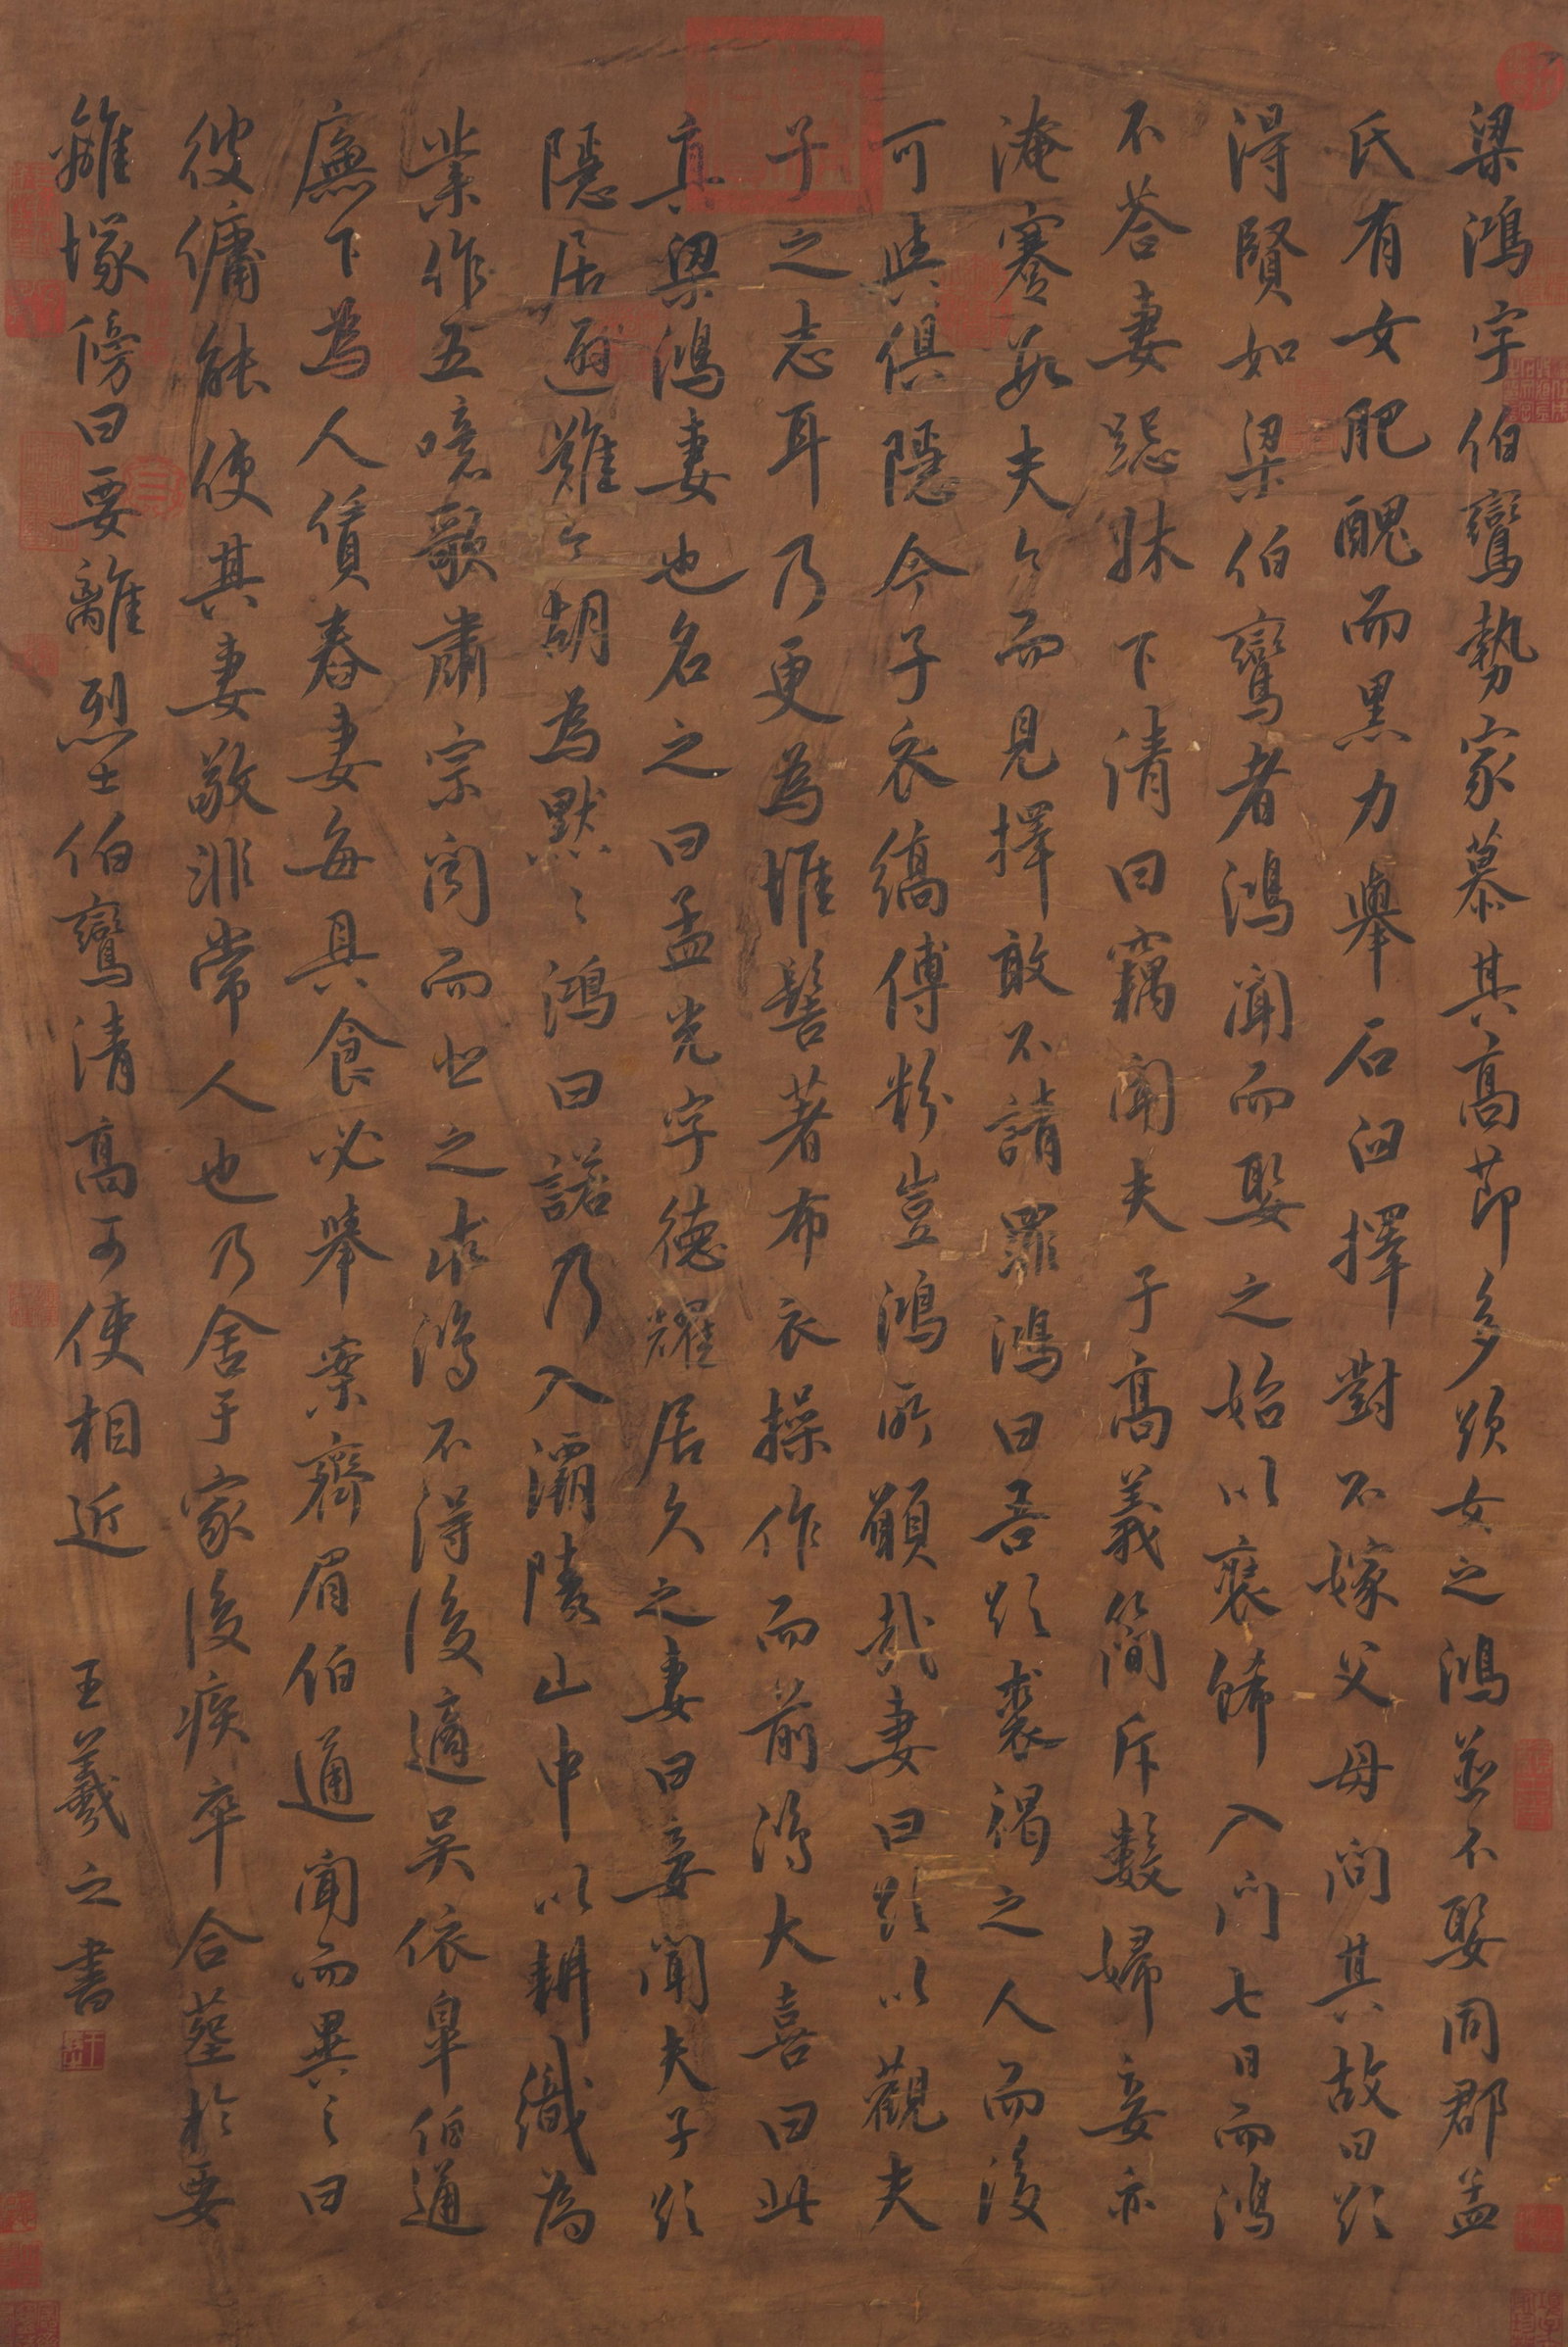 梁鴻字伯鸞勢家慕其高節多欲女之鴻並不娶同郡孟
氏有女肥醜而黑力舉石臼擇對不嫁父母問其故曰欲
得賢如梁伯鸞者鴻聞而娶之始以裝飾入門七日而鴻
不荅妻跽牀下請曰竊聞夫子高義簡斥數婦妾亦
淹蹇數夫今而見擇敢不請罪鴻曰吾欲裘褐之人而後
可與俱隱今子衣縞傅粉豈鴻所願哉妻曰欲以觀夫
子之志耳乃更為椎髻著布衣操作而前鴻大喜曰此
真梁鴻妻也名之曰孟光字德耀居久之妻曰妾聞夫子欲
隱居避難今胡為默々鴻曰諾乃入灞陵山中以耕織為
業作五噫歌肅宗聞而悲之求鴻不得後適吳依皐伯通
廡下為人賃舂妻每具食必舉案齊眉伯通聞而異之曰
彼傭能使其妻敬非常人也乃舍于家後疾卒合塟於要
離塚傍曰要離烈士伯鸞清高可使相近
王羲之書